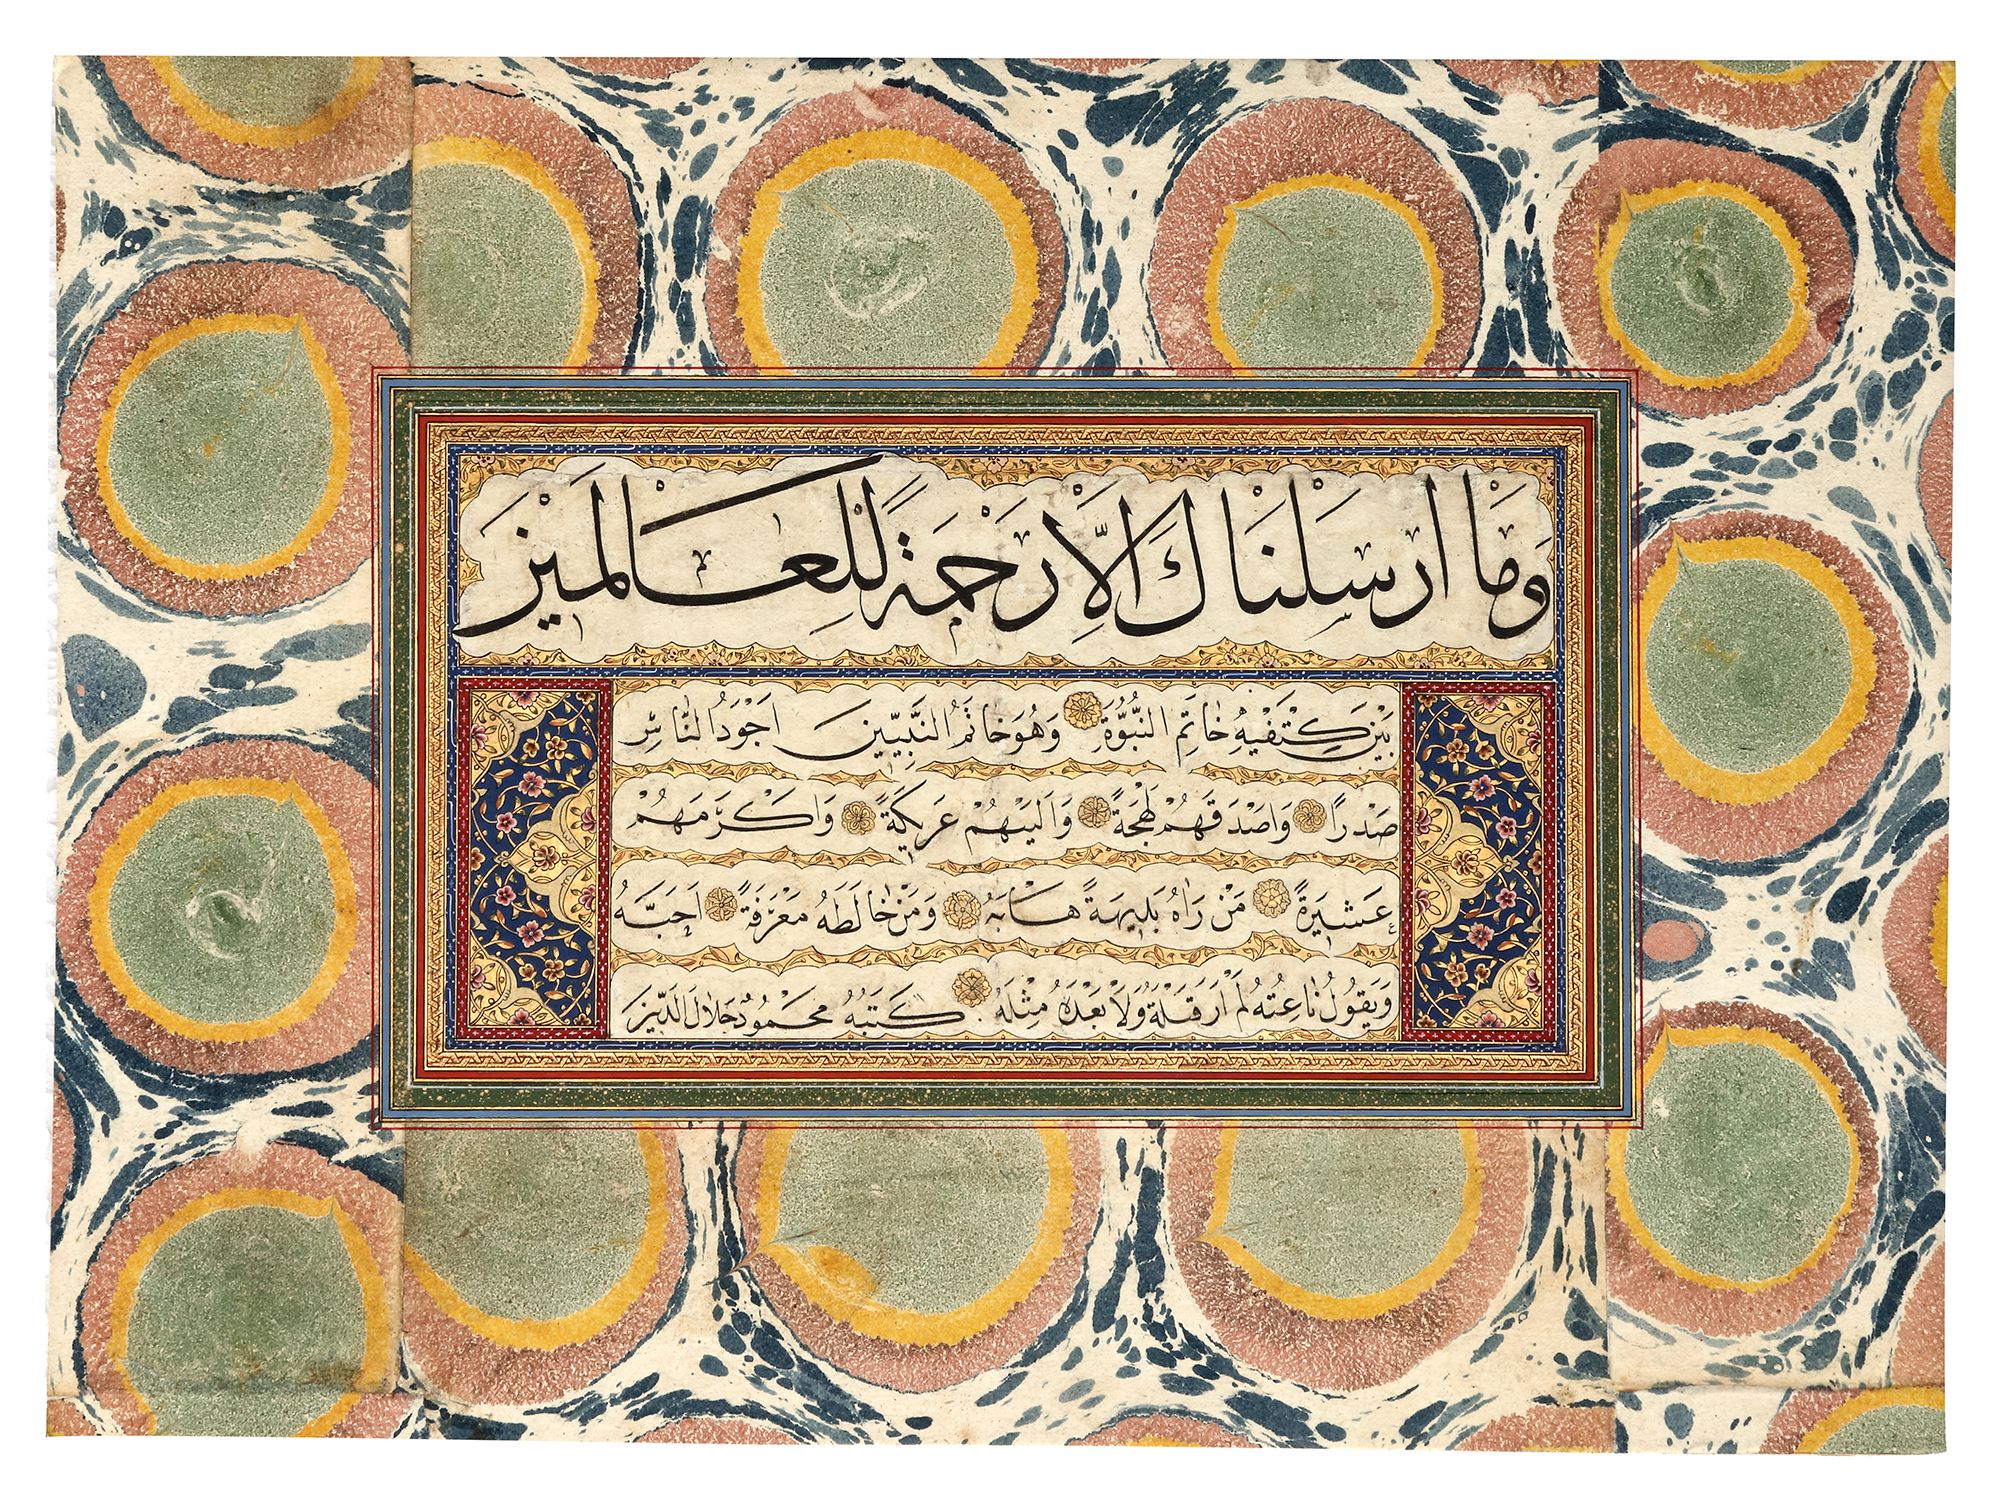 وَمَا اَرْسَلْنَاكَ اِلَّا رَحْمَةً لِلْعَالَمِينَ
بَيْنَ كِتْفَيْهِ خَاتِمُ النُّبُوَّةِ وَهُوَ خَاتَمُ النَّبِيّينَ اَجْوَدُ النَّاسِ
صَدْرًا وَاَصْدَقَهُمْ لَهْجَةً وَاَلْيَنَهُمْ عَرِيكَةً وَاَكْرَمَهُمْ
عَشِيرَةً مَنْ رَاٰهُ بَدِيهَةً هَابَهُ وَمَنْ خَالَطَهُ مَعْرِفَةً اَحَبَّهُ
وَيَقُولُ نَاعِتُهُ لَمْ اَرَ قَبْلَهُ وَلَا بَعْدَهُ مِثْلَهُ كَتَبَهُ مَحْمُودْ جَلَالُ الدِّينِ